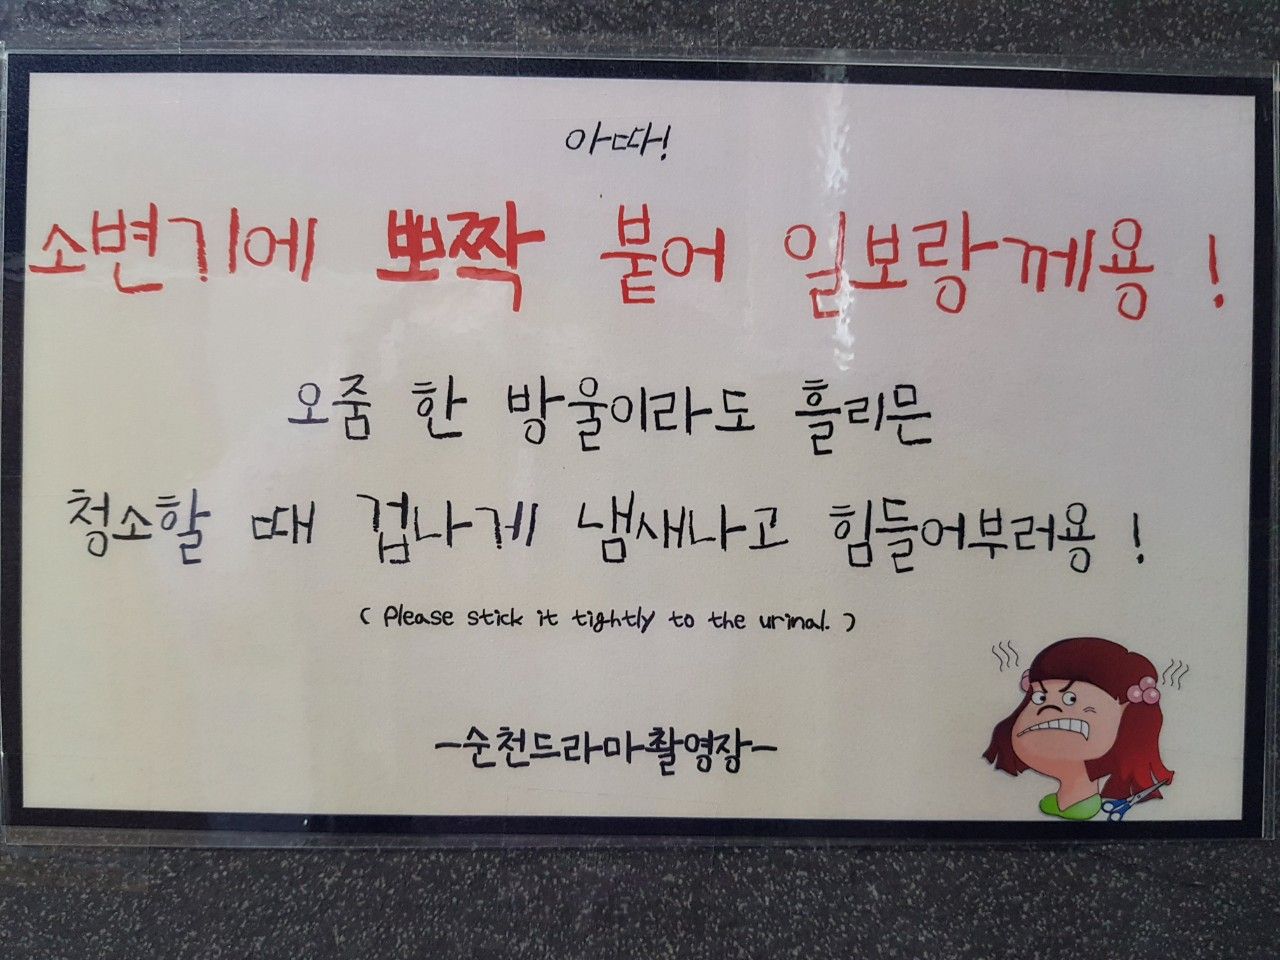 아따!
소변기에 뽀짝 붙어 일보랑께용!
오줌 한 방울이라도 흘리믄
청소할 때 겁나게 냄새나고 힘들어부러용!
( Please stick it tightly to the urinal. )
-순천드라마촬영장-